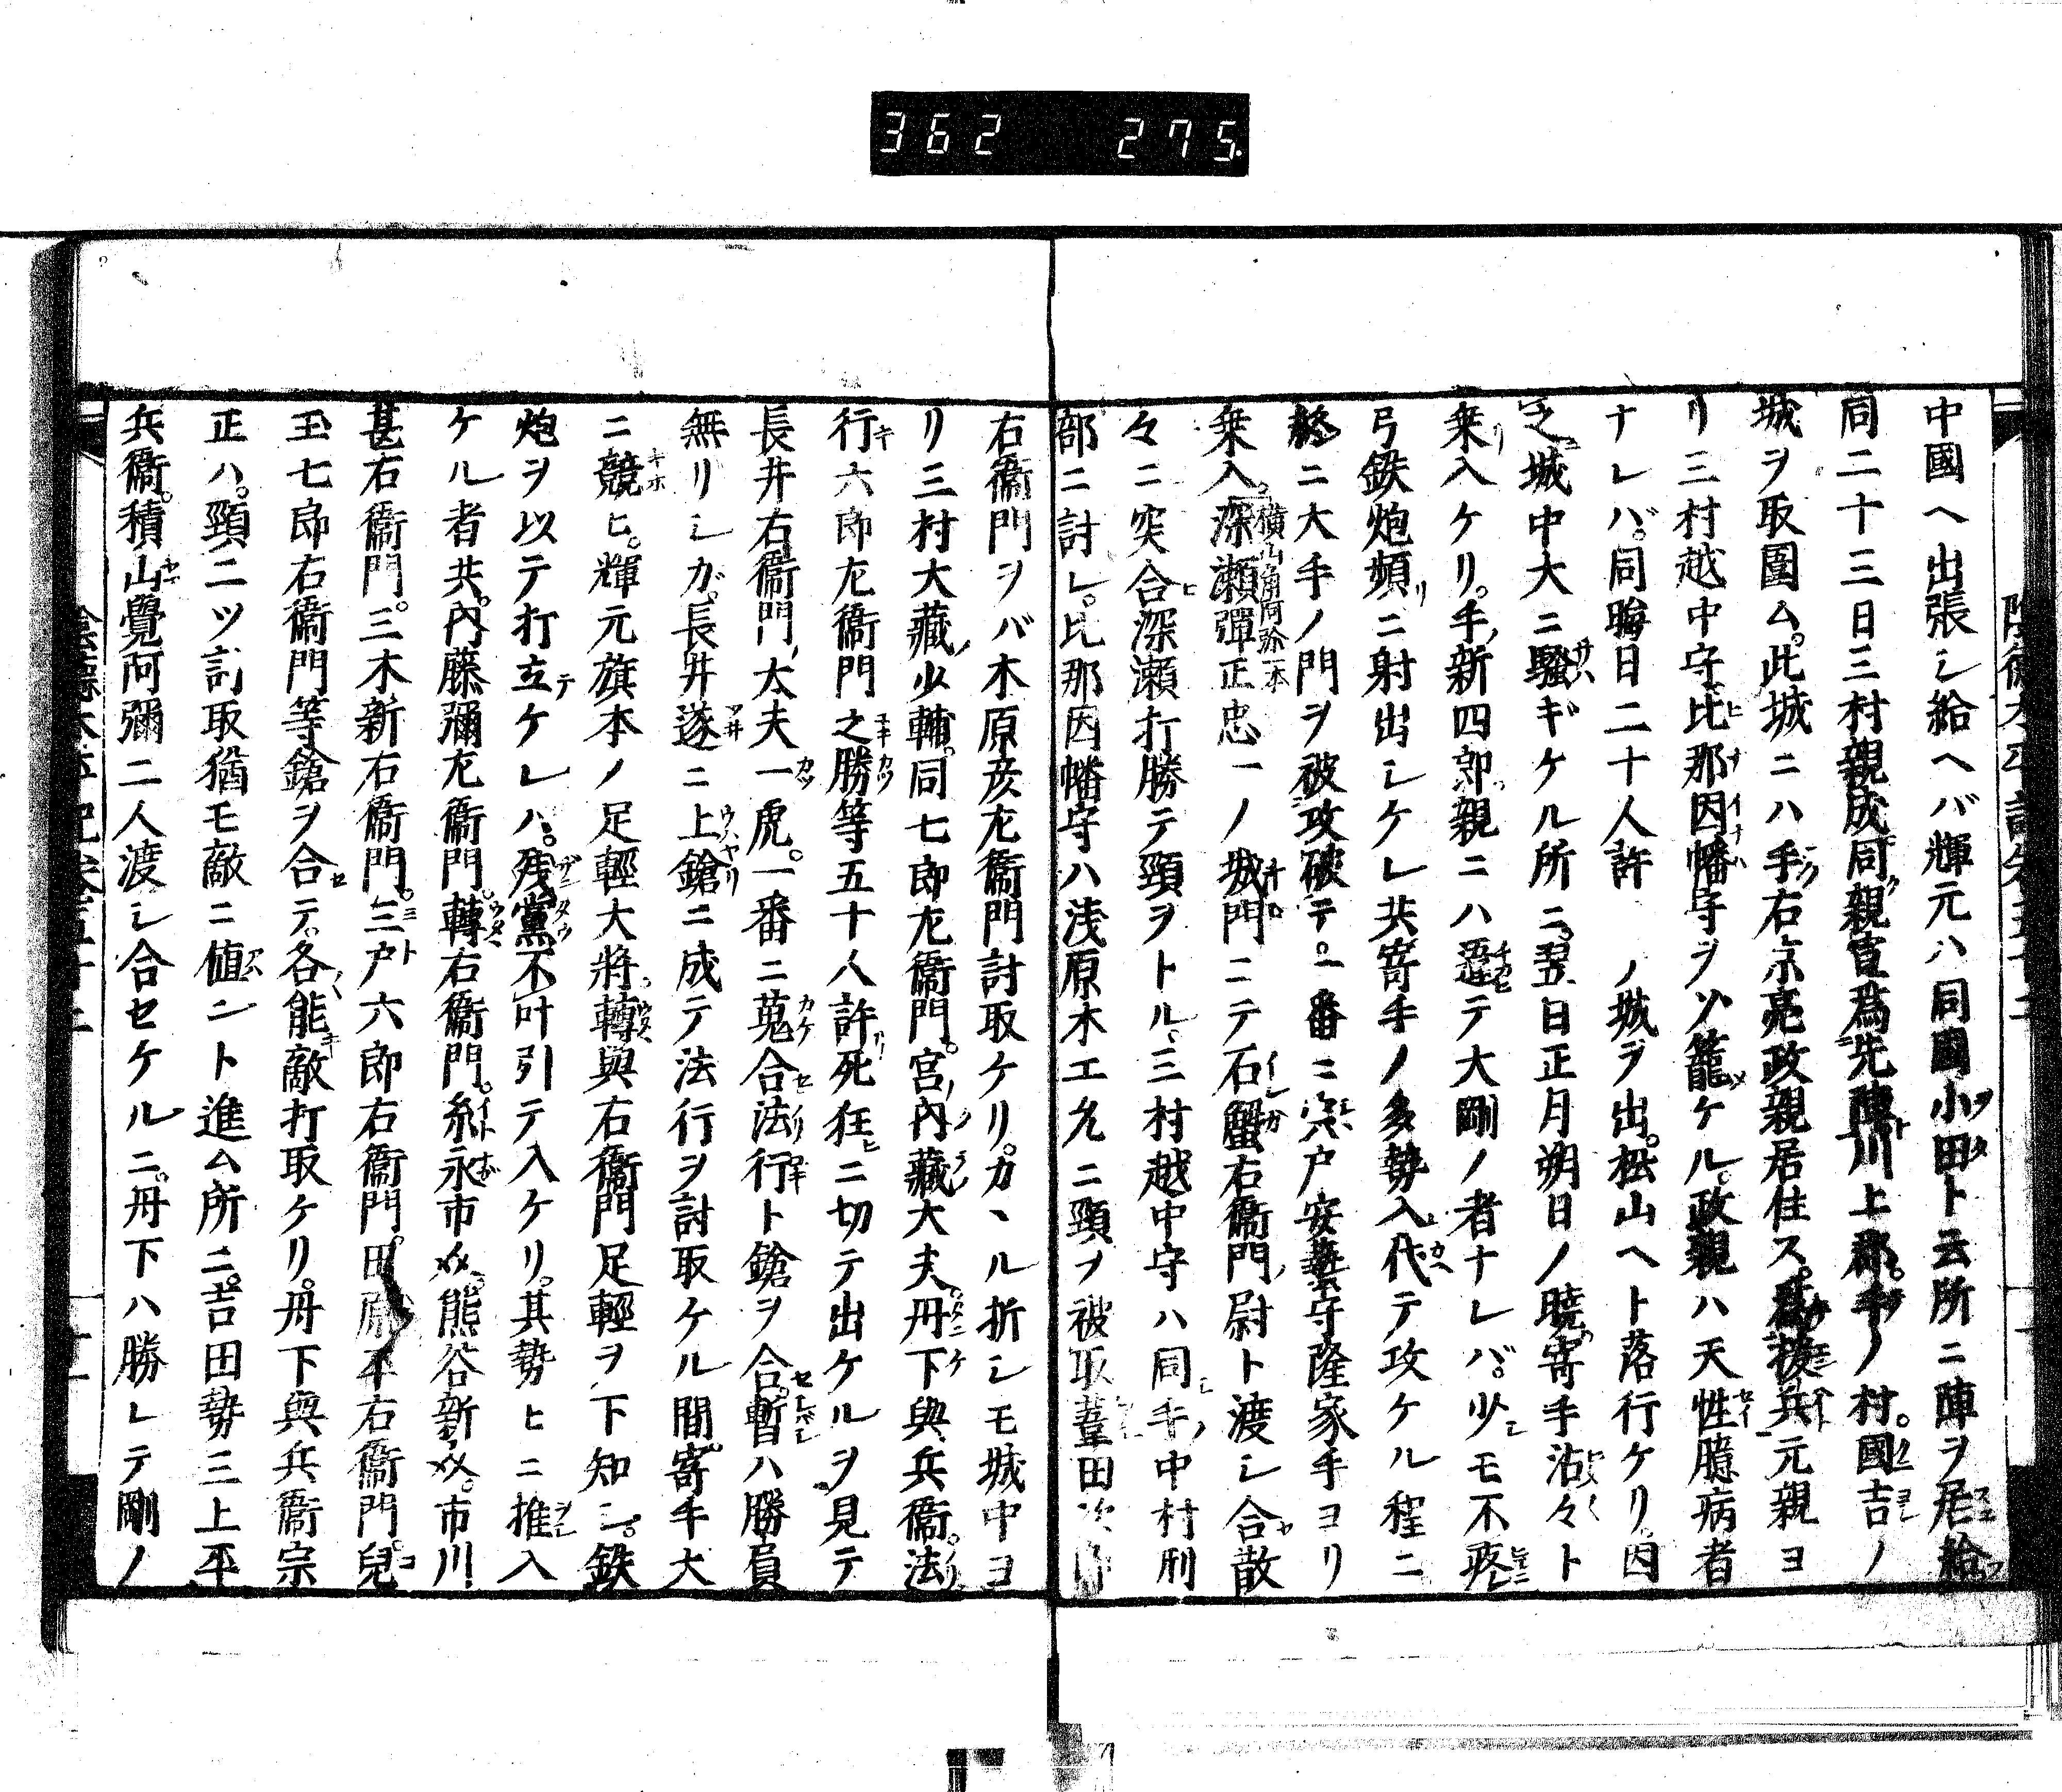 362 275
中國ヘ出張シ給ヘバ輝元ハ同國小田ト云所ニ陣ヲ居給
同二十三日三村親成同親宣為先陣川上郡手ノ村國吉ノ
城ヲ取圍ム。此城ニハ手右京亮政親居住ス。為援兵元親ヨ
リ三村越中守比那因幡守ヲゾ籠ケル。政親ハ天性臆病者
ナレバ。同晦日二十人許ノ城ヲ出。松山ヘト落行ケリ。因
之城中大ニ騒ギケル所ニ。翌日正月朔日ノ曉寄手沾々ト
乗入ケリ。手新四郎親ニハ違テ大剛ノ者ナレバ。少モ不疼
弓鉄炮頻ニ射出シケレ共寄手ノ多勢入代テ攻ケル程ニ
終ニ大手ノ門ヲ被攻破テ。一番ニ宍戸安藝守隆家手ヨリ
乗入。深瀬彈正忠一ノ城門ニテ石蟹右衞門尉ト渡シ合散
横山角阿弥一本
々ニ突合深瀬打勝テ頸ヲトル。三村越中守ハ同手中村刑
部ニ討レ。比那因幡守ハ浅原木工允ニ頸ヲ被取葦田
右衞門ヲバ木原彦尤衞門討取ケリ。カヽル折シモ城中ヨ
リ三村大藏少輔。同七郎尤衞門。宮内藏大夫。丹下與兵衞。法
行六郎尤衞門之勝等五十人許死狂ニ切テ出ケルヲ見テ
長井右衞門大夫一虎。一番ニ蒐合法行ト鎗ヲ合。暫ハ勝負
無リシガ。長井遂ニ上鎗ニ成テ法行ヲ討取ケル間。寄手大
ニ競ヒ。輝元旗本ノ足輕大將。轉與右衞門足輕ヲ下知シ。鉄
炮ヲ以テ打立ケレハ。残黨不叶引テ入ケリ。其勢ヒニ推入
ケル者共。内藤彌尤衞門。轉右衞門。糸永市允。熊谷新允。市川
甚右衞門。三木新右衞門。三戸六郎右衞門。田原平右衞門。兒
玉七郎右衞門等鎗ヲ合テ。各能敵打取ケリ。丹下與兵衞宗
正ハ。頸二ツ討取猶モ敵ニ値ント進ム所ニ。吉田勢三上平
兵衞。積山覺阿彌二人渡シ合セケルニ。丹下ハ勝レテ剛ノ